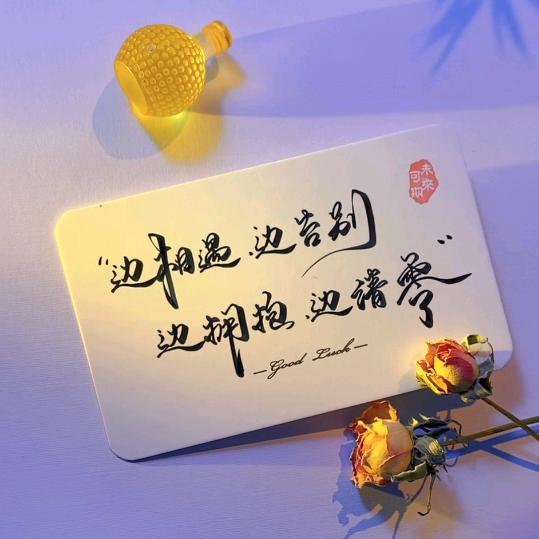 “边相遇 边告别
边拥抱 边清零”
—Good Luck—
未來可期